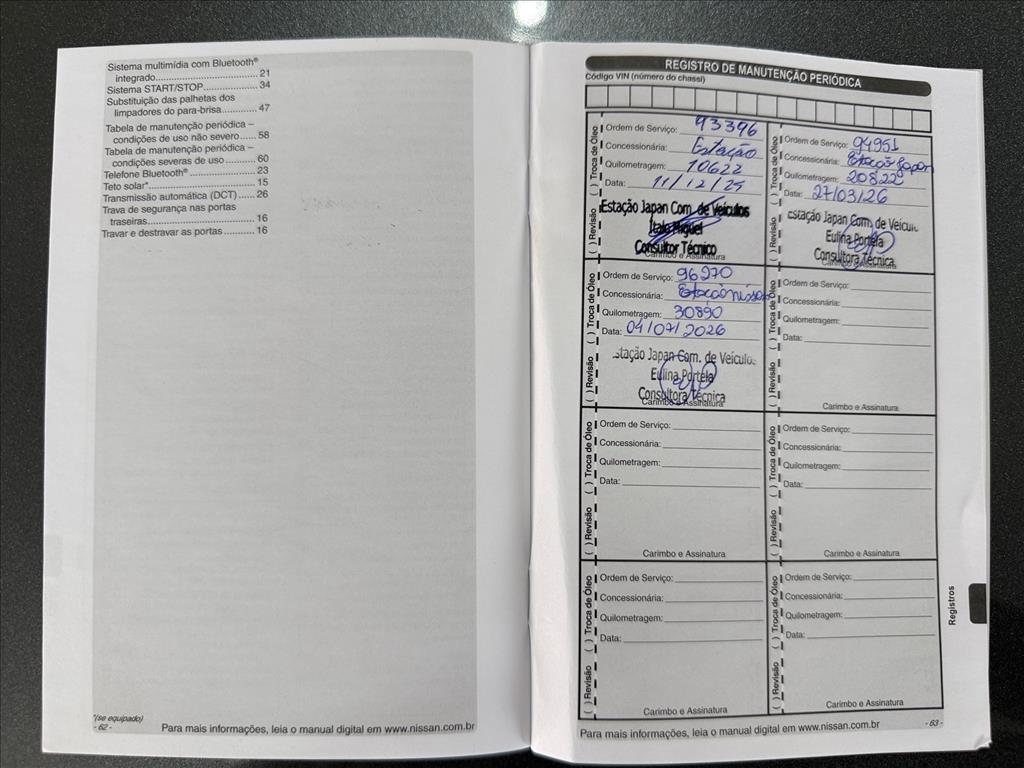 Sistema multimídia com Bluetooth®
integrado.......................................... 21
Sistema START/STOP...................... 34
Substituição das palhetas dos
limpadores do para-brisa............. 47
Tabela de manutenção periódica –
condições de uso não severo...... 58
Tabela de manutenção periódica –
condições severas de uso........... 60
Telefone Bluetooth®........................... 23
Teto solar*........................................... 15
Transmissão automática (DCT)...... 26
Trava de segurança nas portas
traseiras.......................................... 16
Travar e destravar as portas........... 16
*(se equipado)
- 62 -
Para mais informações, leia o manual digital em www.nissan.com.br
REGISTRO DE MANUTENÇÃO PERIÓDICA
Código VIN (número do chassi)
( ) Revisão ( ) Troca de Óleo
Ordem de Serviço: 93396
Concessionária: Estação
Quilometragem: 10622
Data: 11/12/25
Estação Japan Com. de Veículos
Ítalo Miguel
Consultor Técnico
Carimbo e Assinatura
( ) Revisão ( ) Troca de Óleo
Ordem de Serviço: 94951
Concessionária: Estação Japan
Quilometragem: 20822
Data: 27/03/26
Estação Japan Com. de Veícul
Eulina Portela
Consultora Técnica
Carimbo e Assinatura
( ) Revisão ( ) Troca de Óleo
Ordem de Serviço: 96270
Concessionária: Estação Nissan
Quilometragem: 30890
Data: 04/07/2026
stação Japan Com. de Veículos
Eulina Portela
Consultora Técnica
Carimbo e Assinatura
( ) Revisão ( ) Troca de Óleo
Ordem de Serviço:
Concessionária:
Quilometragem:
Data:
Carimbo e Assinatura
( ) Revisão ( ) Troca de Óleo
Ordem de Serviço:
Concessionária:
Quilometragem:
Data:
Carimbo e Assinatura
( ) Revisão ( ) Troca de Óleo
Ordem de Serviço:
Concessionária:
Quilometragem:
Data:
Carimbo e Assinatura
( ) Revisão ( ) Troca de Óleo
Ordem de Serviço:
Concessionária:
Quilometragem:
Data:
Carimbo e Assinatura
( ) Revisão ( ) Troca de Óleo
Ordem de Serviço:
Concessionária:
Quilometragem:
Data:
Carimbo e Assinatura
Registros
Para mais informações, leia o manual digital em www.nissan.com.br
- 63 -